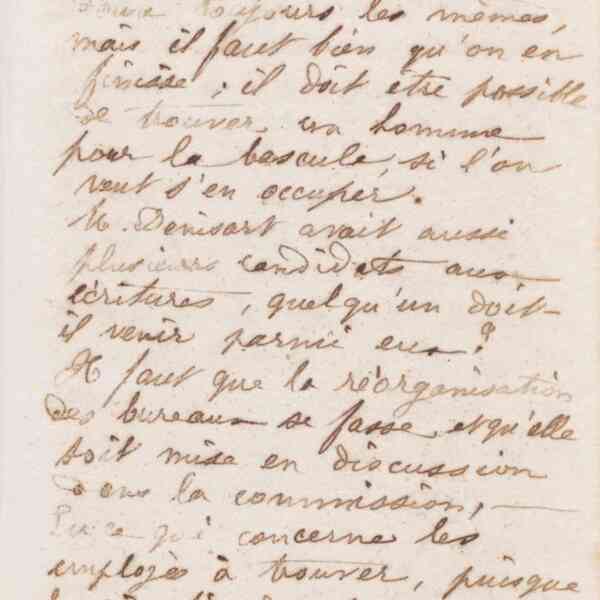 toujours les mêmes,
mais il faut bien qu'on en
finisse ; il doit être possible
de trouver un homme
pour la bascule, si l'on
veut s'en occuper.
M. Denisart avait aussi
plusieurs candidats aux
écritures, quelqu'un doit-
il venir parmi eux ?
Il faut que la réorganisation
des bureaux se fasse et qu'elle
soit mise en discussion
dans la commission, —
Pour ce qui concerne les
employés à trouver, puisque